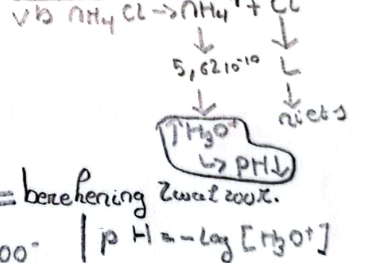 vb NH4 Cl → NH4+ + Cl
5,6210-10
L
niets
↑H3O+
↳ pH↓
= berekening zwak zoo
| pH = -log [H3O+]
OO-